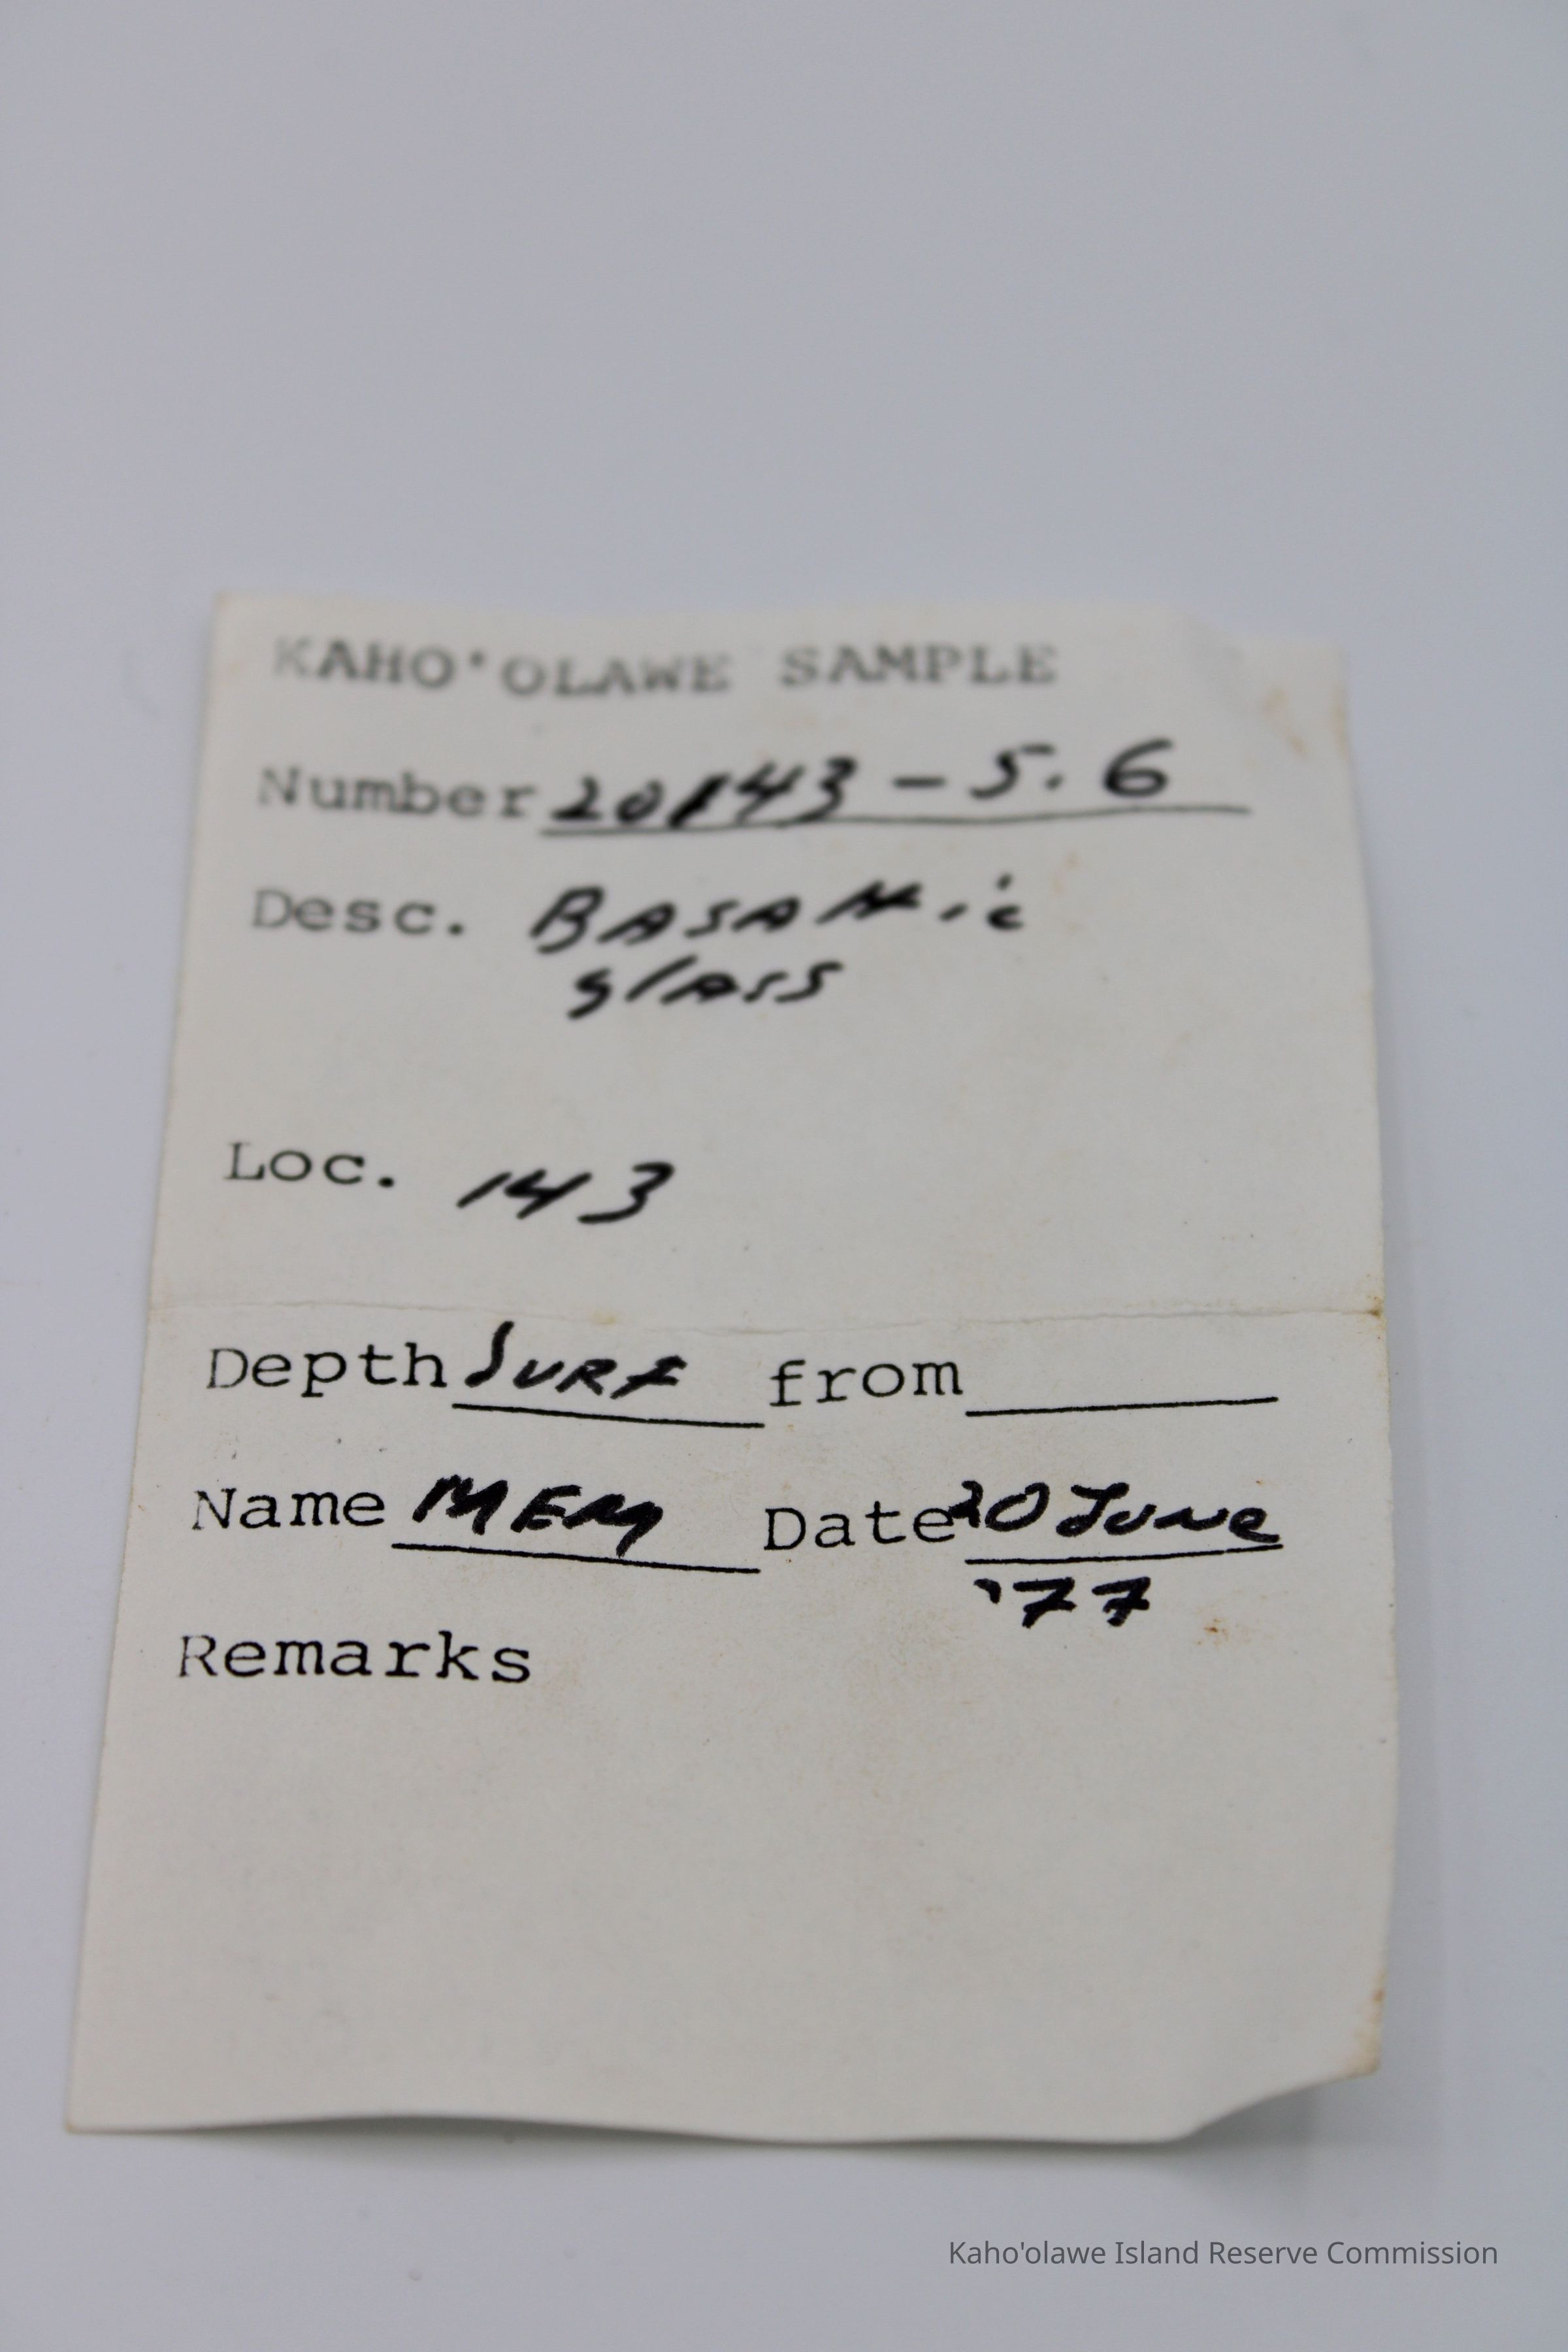 KAHO'OLAWE SAMPLE
Number 20143 - 5.6
Desc. BASAltic
glass
Loc. 143
Depth SURF from
Name MEM Date 20 June
'77
Remarks
Kaho'olawe Island Reserve Commission